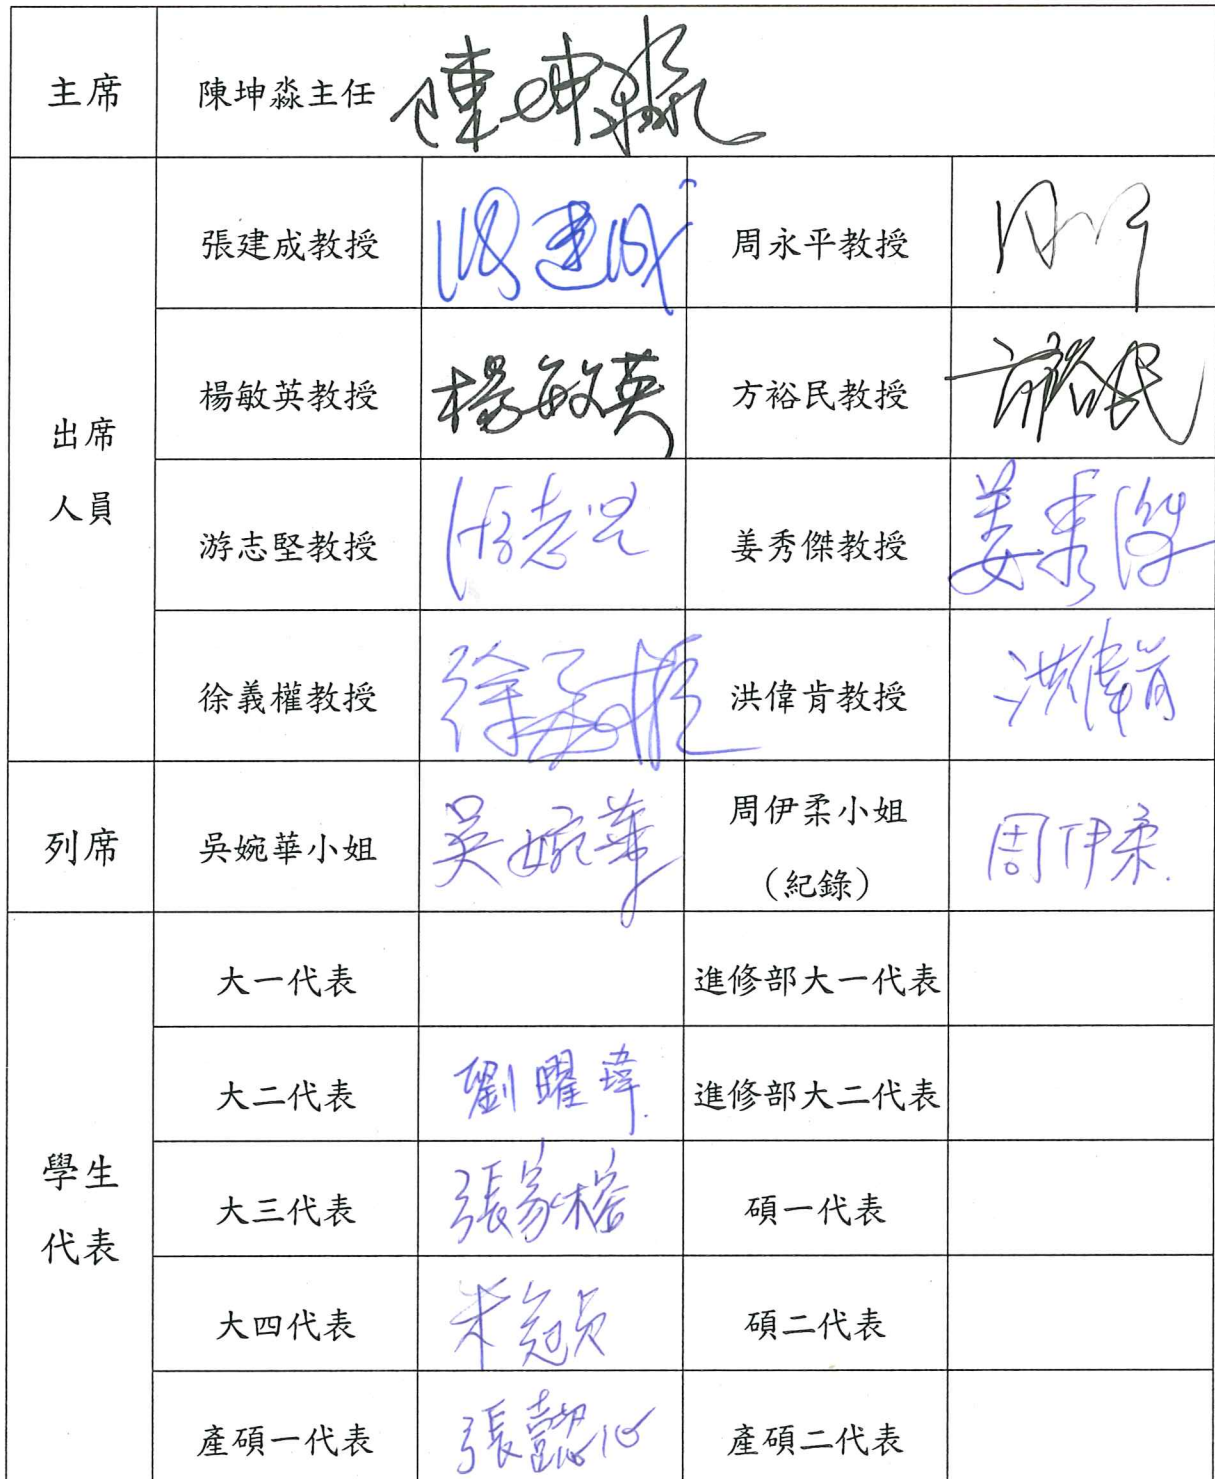 主席
陳坤淼主任 陳坤淼
出席
人員
張建成教授 張建成 周永平教授
楊敏英教授 楊敏英 方裕民教授 方裕民
游志堅教授 游志堅 姜秀傑教授 姜秀傑
徐義權教授 徐義權 洪偉肯教授 洪偉肯
列席
吳婉華小姐 吳婉華 周伊柔小姐
(紀錄) 周伊柔
學生
代表
大一代表 進修部大一代表
大二代表 劉曜瑋 進修部大二代表
大三代表 張家榕 碩一代表
大四代表 碩二代表
產碩一代表 產碩二代表